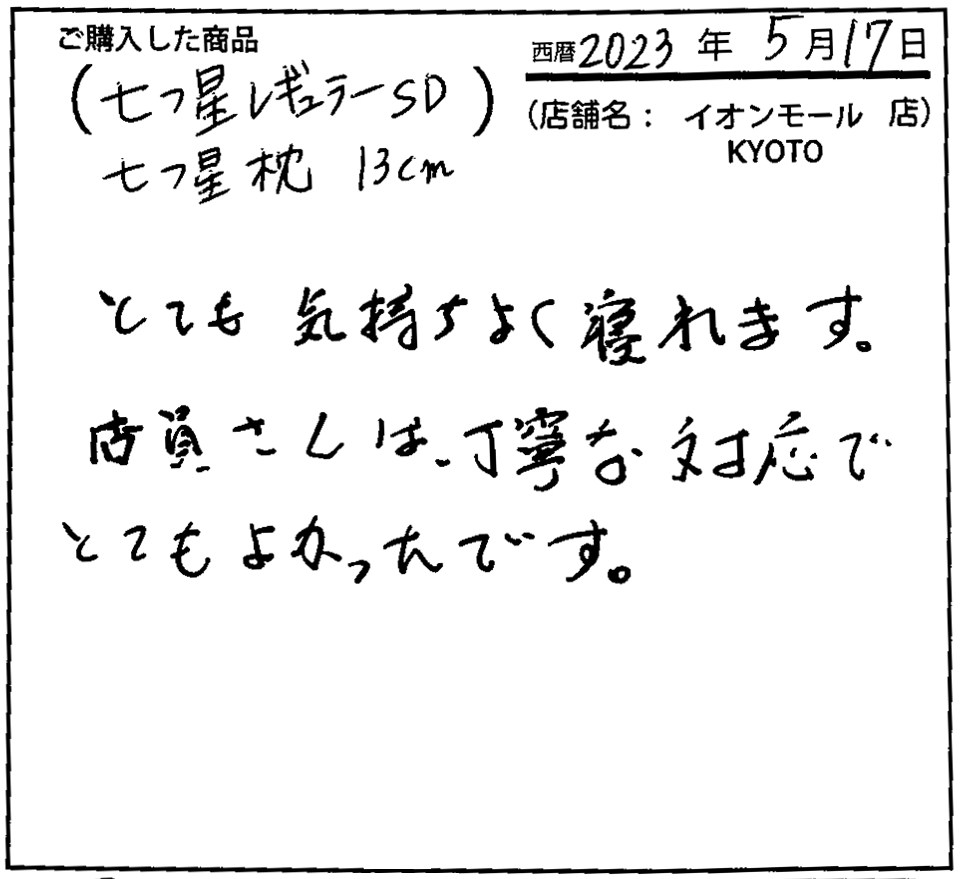 ご購入した商品
西暦2023年 5月17日
(七つ星レギュラーSD)
(店舗名: イオンモール 店)
KYOTO
七つ星枕 13cm
とても 気持ちよく寝れます。
店員さんは、丁寧な対応で
とてもよかったです。